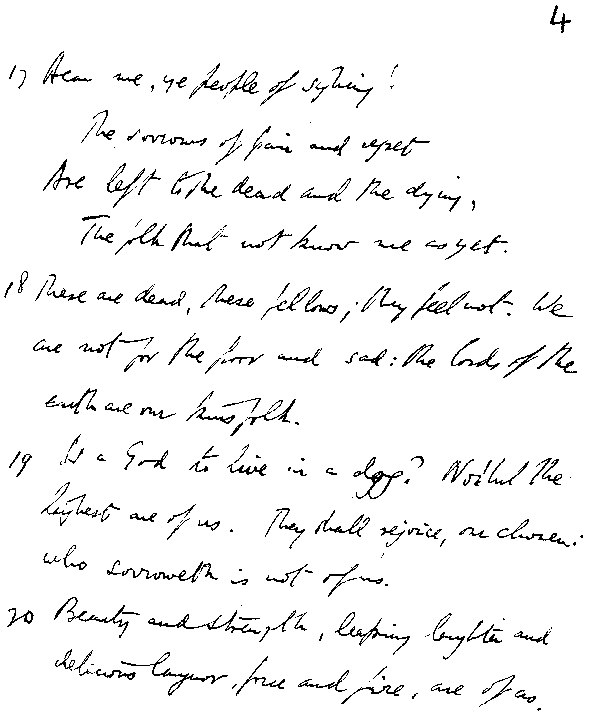 4
17 Hear me, ye people of sighing!
The sorrows of pain and regret
Are left to the dead and the dying,
The folk that not know me as yet.
18 These are dead, these fellows; they feel not. We
are not for the poor and sad: the lords of the
earth are our kinsfolk.
19 Is a God to live in a dog? No! but the
highest are of us. They shall rejoice, our chosen:
who sorroweth is not of us.
20 Beauty and strength, leaping laughter and
delicious languor, force and fire, are of us.